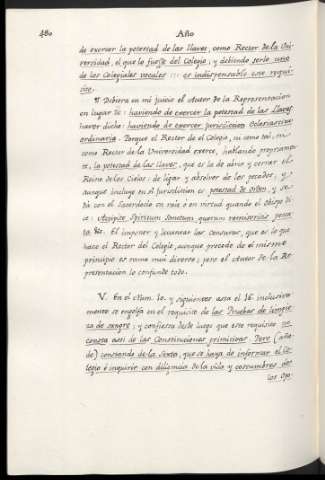 480 Año
de exercer la potestad de las llaves, como Rector de la Uni-
versidad, el que lo fuesse del Colegio, y debiendo serlo uno
de los Colegiales vocales ::: es indispensable este requi-
sito.
¶ Debiera en mi juicio el Autor de la Representacion
en lugar de: haviendo de exercer la potestad de las llaves
haver dicho: haviendo de exercer jurisdiccion eclesiastica
ordinaria. Porque el Rector de el Colegio, ni como tal, ni
como Rector de la Universidad exerce, hablando propriamen-
te, la potestad de las llaves, que es la de abrir y cerrar el
Reino de los Cielos: de ligar y absolver de los pecados, y
aunque incluye en sí jurisdiccion es potestad de orden, y se
dá con el Sacerdocio en raiz ó en virtud quando el Obispo di-
ce: Accipite Spiritum Sanctum quorum remiseritis pecca
ta &c. El imponer y levantar las censuras, que es lo que
hace el Rector del Colegio, aunque procede de el mismo
principio es ramo mui diverso; pero el Autor de la Re-
presentacion lo confunde todo.
V. En el Num. 10. y siguientes asta el 16. inclusivo
mente se engolfa en el requisito de las Pruebas de limpie
za de sangre; y confiesa desde luego que este requisito no
consta assi de las Constituciones primitivas. Pero (aña-
de) constando de la sexta, que se haya de informar el Co-
legio é inquirir con diligencia de la vida y costumbres de
los Opo-